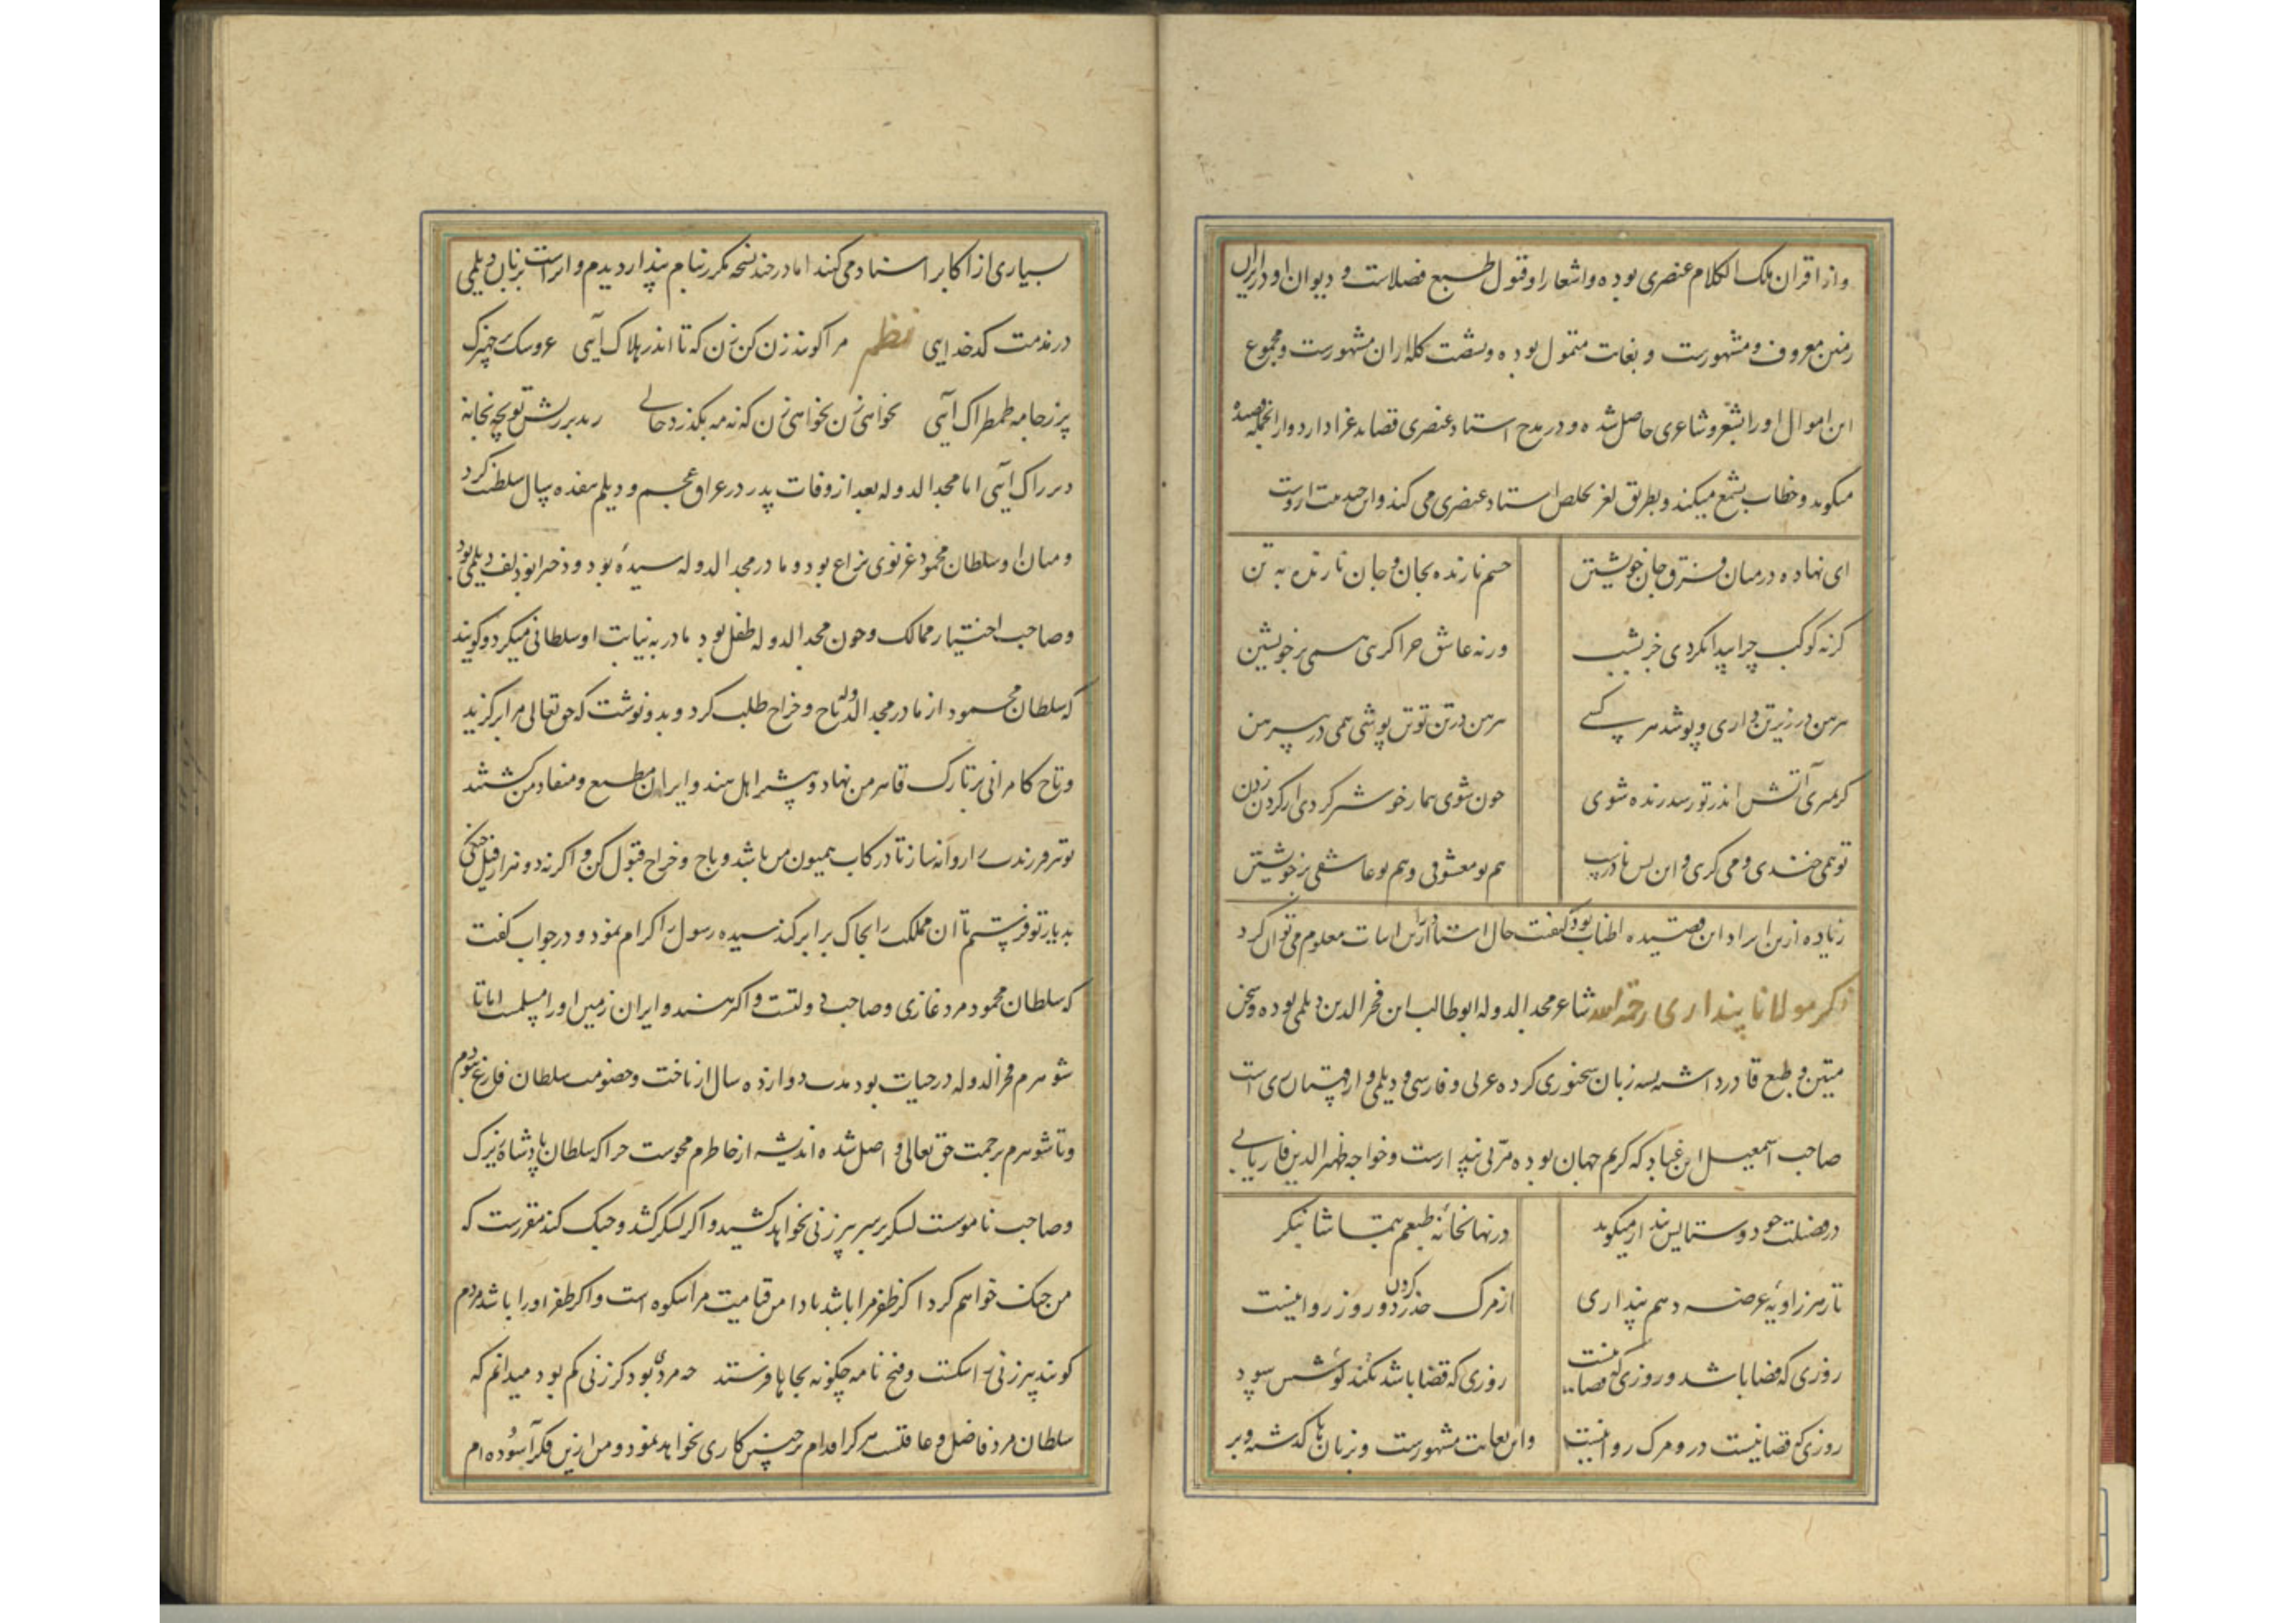 و از اقران ملک الکلام عنصری بوده و اشعار او قبول طبع فضلاست و دیوان او در ایران
زمین معروف و مشهورست و بغایت متمول بوده و بشصت کله‌ران مشهورست و مجموع
این اموال او را بشعر و شاعری حاصل شده و در مدح استاد عنصری قصاید غرا دارد و از آنجمله قصیدهٔ
میگوید و خطاب بشمع میکند و بطریق لغز تخلص استاد عنصری می کند و این چند بیت ازوست
ای نهاده در میان فرق جان خویشتن
جسم ما زنده بجان و جان تو زنده به تن
گر نه کوکب چرا پیدا نکردی جز بشب
ور نه عاشق چرا گریی همی بر خویشتن
پیرهن در زیر تن داری و پوشد هر کسی
پیرهن در تن تو تن پوشی همی در پیرهن
گر بمیری آتش اندر تو رسد زنده شوی
چون شوی بیمار خوشتر گردی از گردن زدن
تو همی خندی و می گری و این بس نادرست
هم تو معشوقی و هم تو عاشقی بر خویشتن
زیاده ازین ایراد این قصیده اطناب بود کیفیت حال استاد را ازین ابیات معلوم می توان کرد
ذکر مولانا پنداری رحمة الله شاعر مجد الدوله ابو طالب ابن فخر الدین دیلمی بوده و سخن
متین و طبع قادر داشته بسه زبان سخنوری کرده عربی و فارسی و دیلمی و از قهستان ری است
صاحب اسمعیل ابن عباد که کریم جهان بوده مربی پندارست و خواجه ظهیر الدین فاریابی
در فضیلت خود و ستایش پندار میگوید
در نهانخانهٔ طبعم بتماشا بنگر
تا ز هر زاویهٔ عرضه دهم پنداری
از مرگ حذر کردن دو روز روا نیست
روزی که قضا باشد و روزی که قضا نیست
روزی که قضا باشد نکند کوشش سود
روزی که قضا نیست درو مرگ روا نیست
و این بغایت مشهورست و بزبان‌ها گذشته و بر
بسیاری از اکابر اسناد می کنند اما در چند نسخه مکرر بنام پندار دیدم و او راست بزبان دیلمی
در مذمت کدخدایی نظم مرا گویند زن کن زن که تا اندر هلاک آیی عروسک بر جهیزک
پر ز جامه طمطراک آیی نخواهی زن نخواهی زن که نه مه بگذرد حالی
آیی اما مجد الدوله بعد از وفات پدر در عراق عجم و دیلم هفده سال سلطنت کرد
و میان او و سلطان محمود غزنوی نزاع بود و مادر مجد الدوله سیدهٔ بود و دختر ابودلف دیلمی بود
و صاحب اختیار ممالک و چون مجد الدوله طفل بود مادر به نیابت او سلطانی میکرد و گویند
که سلطان محمود از مادر مجد الدوله باج و خراج طلب کرد و بدو نوشت که حق تعالی مرا برگزید
و تاج کامرانی بر تارک من نهاد و بیشتر اهل هند و ایران مطیع و منقاد من گشتند
تو نیز فرزند را روانه ساز تا در رکاب همیون من باشد و باج و خراج قبول کن و اگر نه دو هزار فیل جنگی
بدیار تو فرستم تا آن مملکت را بخاک برابر کند سیده رسول را اکرام نمود و در جواب گفت
که سلطان محمود مرد غازی و صاحب دولتست و اکثر هند و ایران زمین او را مسلمست اما تا
شوهرم فخر الدوله در حیات بود مدت دوازده سال از تاخت و خصومت سلطان فارغ نبودم
و تا شوهرم برحمت حق تعالی واصل شده اندیشه از خاطرم محوست چرا که سلطان پادشاه بزرگ
و صاحب ناموست لشکر بر سر پیر زنی نخواهد کشید و اگر لشکر کشد و جنگ کند مقررست که
من جنگ خواهم کرد اگر ظفر مرا باشد تا دامن قیامت مرا شکوه است و اگر ظفر او را باشد مردم
گویند پیر زنی را شکست و فتح نامه چگونه بجاها فرستد چه مردی بود کز زنی کم بود میدانم که
سلطان مرد فاضل و عاقلست هرگز اقدام بر چنین کاری نخواهد نمود و من ازین فکر آسوده ام